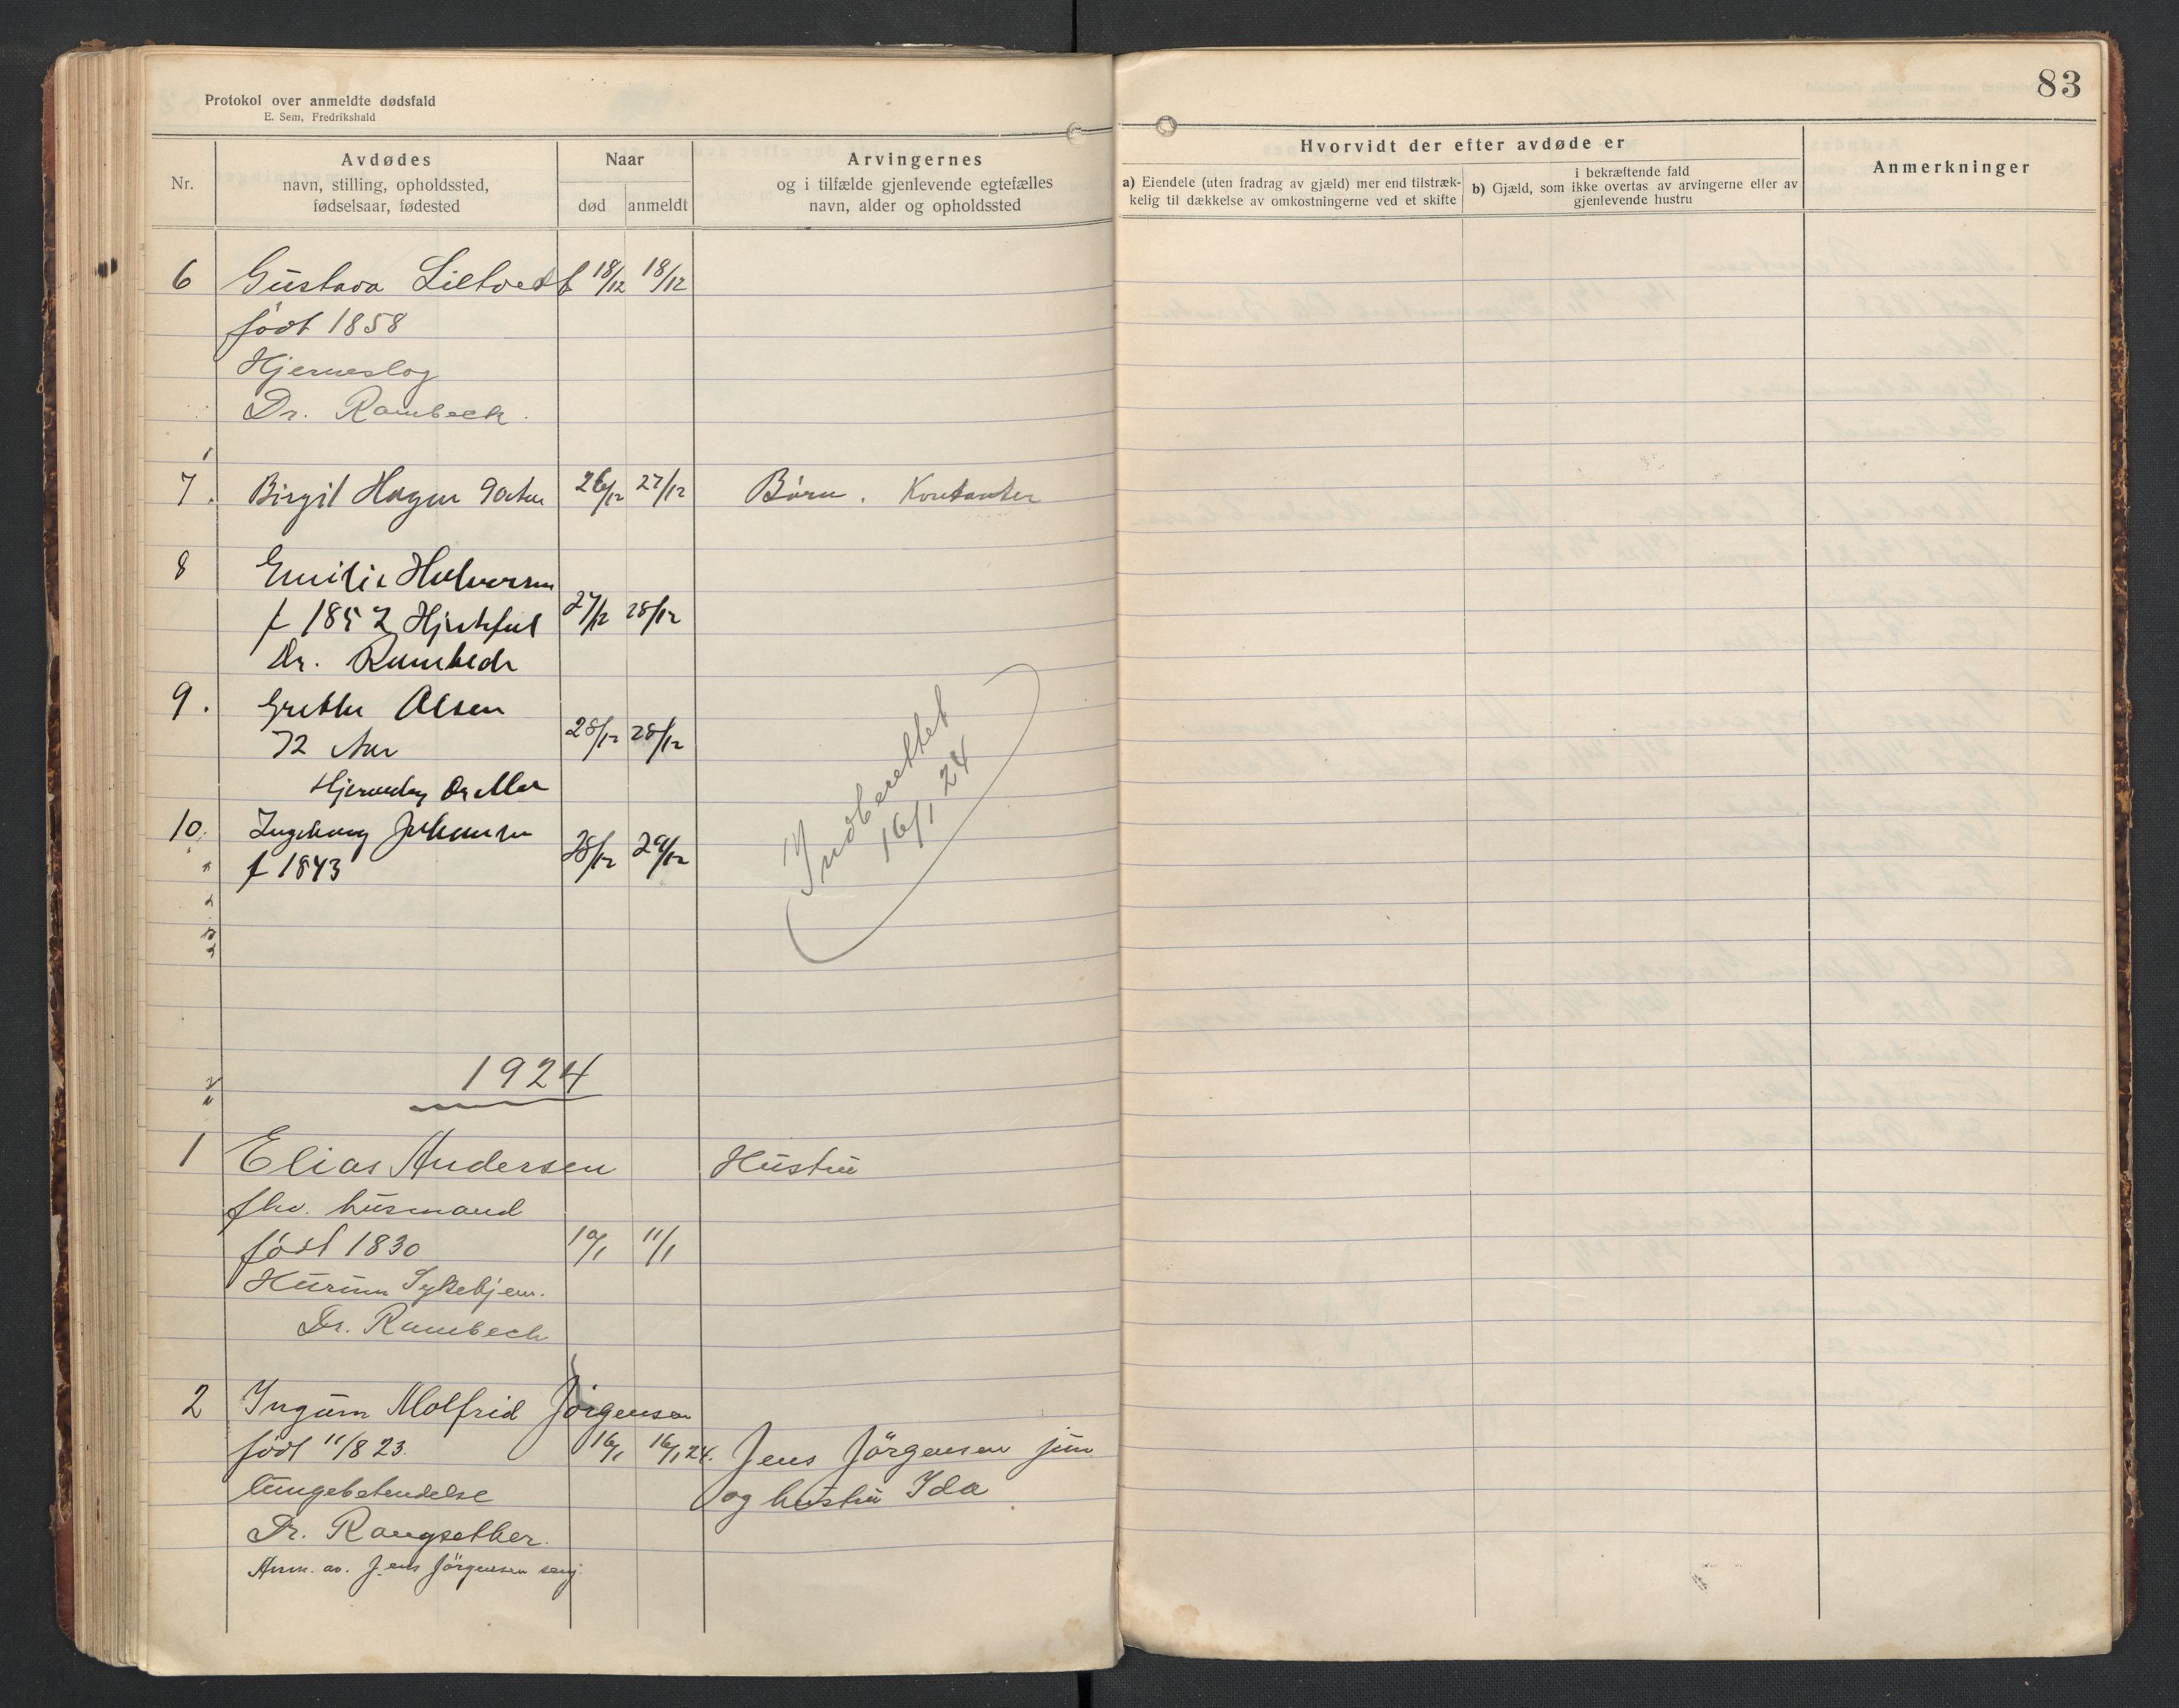 Protokol over anmeldte dødsfald
E. Sem, Fredrikshald
83
Nr.
Avdødes
navn, stilling, opholdssted,
fødselsaar, fødested
Naar
død anmeldt
Arvingernes
og i tilfælde gjenlevende egtefælles
navn, alder og opholdssted
Hvorvidt der efter avdøde er
a) Eiendele (uten fradrag av gjæld) mer end tilstræk-
kelig til dækkelse av omkostningerne ved et skifte
i bekræftende fald
b) Gjæld, som ikke overtas av arvingerne eller av
gjenlevende hustru
Anmerkninger
6 Gustava Lietvedt 18/12 18/12
født 1858
Hjerneslag
Dr. Rambech.
7. Birgit Hagen 26/12 27/12 Børn. Kontanter
8 Emilie Halvorsen
f 1852 Hjertefeil 27/12 28/12
Dr. Rambech
9. Grethe Olsen
72 Aar 28/12 28/12
Hjerneslag Dr
10. Ingeborg Johansen
f 1843 28/12 29/12
Indberettet
16/1 24
1924
1 Elias Andersen Hustru
fhv. husmand
født 1830 10/1 11/1
Hurum Sykehjem.
Dr. Rambech
2 Ingum Molfrid Jørgensen
født 11/8 23. 16/1 16/1 24. Jens Jørgensen jun
Lungebetendelse og hustru Ida
Dr. Rangsether.
Anm. av. Jens Jørgensen senj.